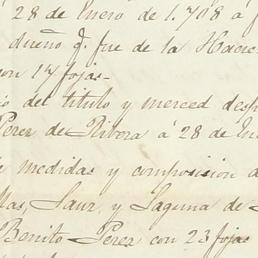 28 de Enero de 1.708 a f
dueño q. fue de la Hacie
con 17 fojas-
io del titulo y merced desp
Perez de Ribera á 28 de En
e medidas y composision d
llas, Saur, y Laguna de
Benito Perez con 23 fojas